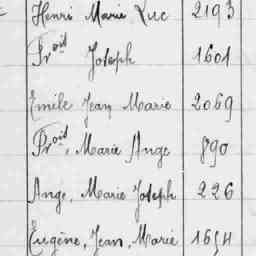 Henri Marie Luc 2193
Pr^oit Joseph 1601
Emile Jean Marie 2069
Pr^oit, Marie Ange 890
Ange, Marie Joseph 226
Eugène, Jean, Marie 1654